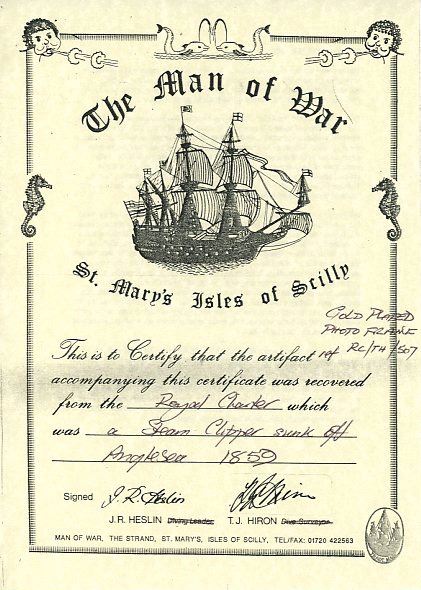 The Man of War
St. Mary's Isles of Scilly
GOLD PLATED
PHOTO FRAME
This is to Certify that the artifact ref RC/TH/507
accompanying this certificate was recovered
from the Royal Charter which
was a Steam Clipper sunk off
Anglesea 1859
Signed J.R. Heslin T.J. Hiron
J.R. HESLIN Diving Leader T.J. HIRON Dive Surveyor
MAN OF WAR, THE STRAND, ST. MARY'S, ISLES OF SCILLY, TEL/FAX: 01720 422563